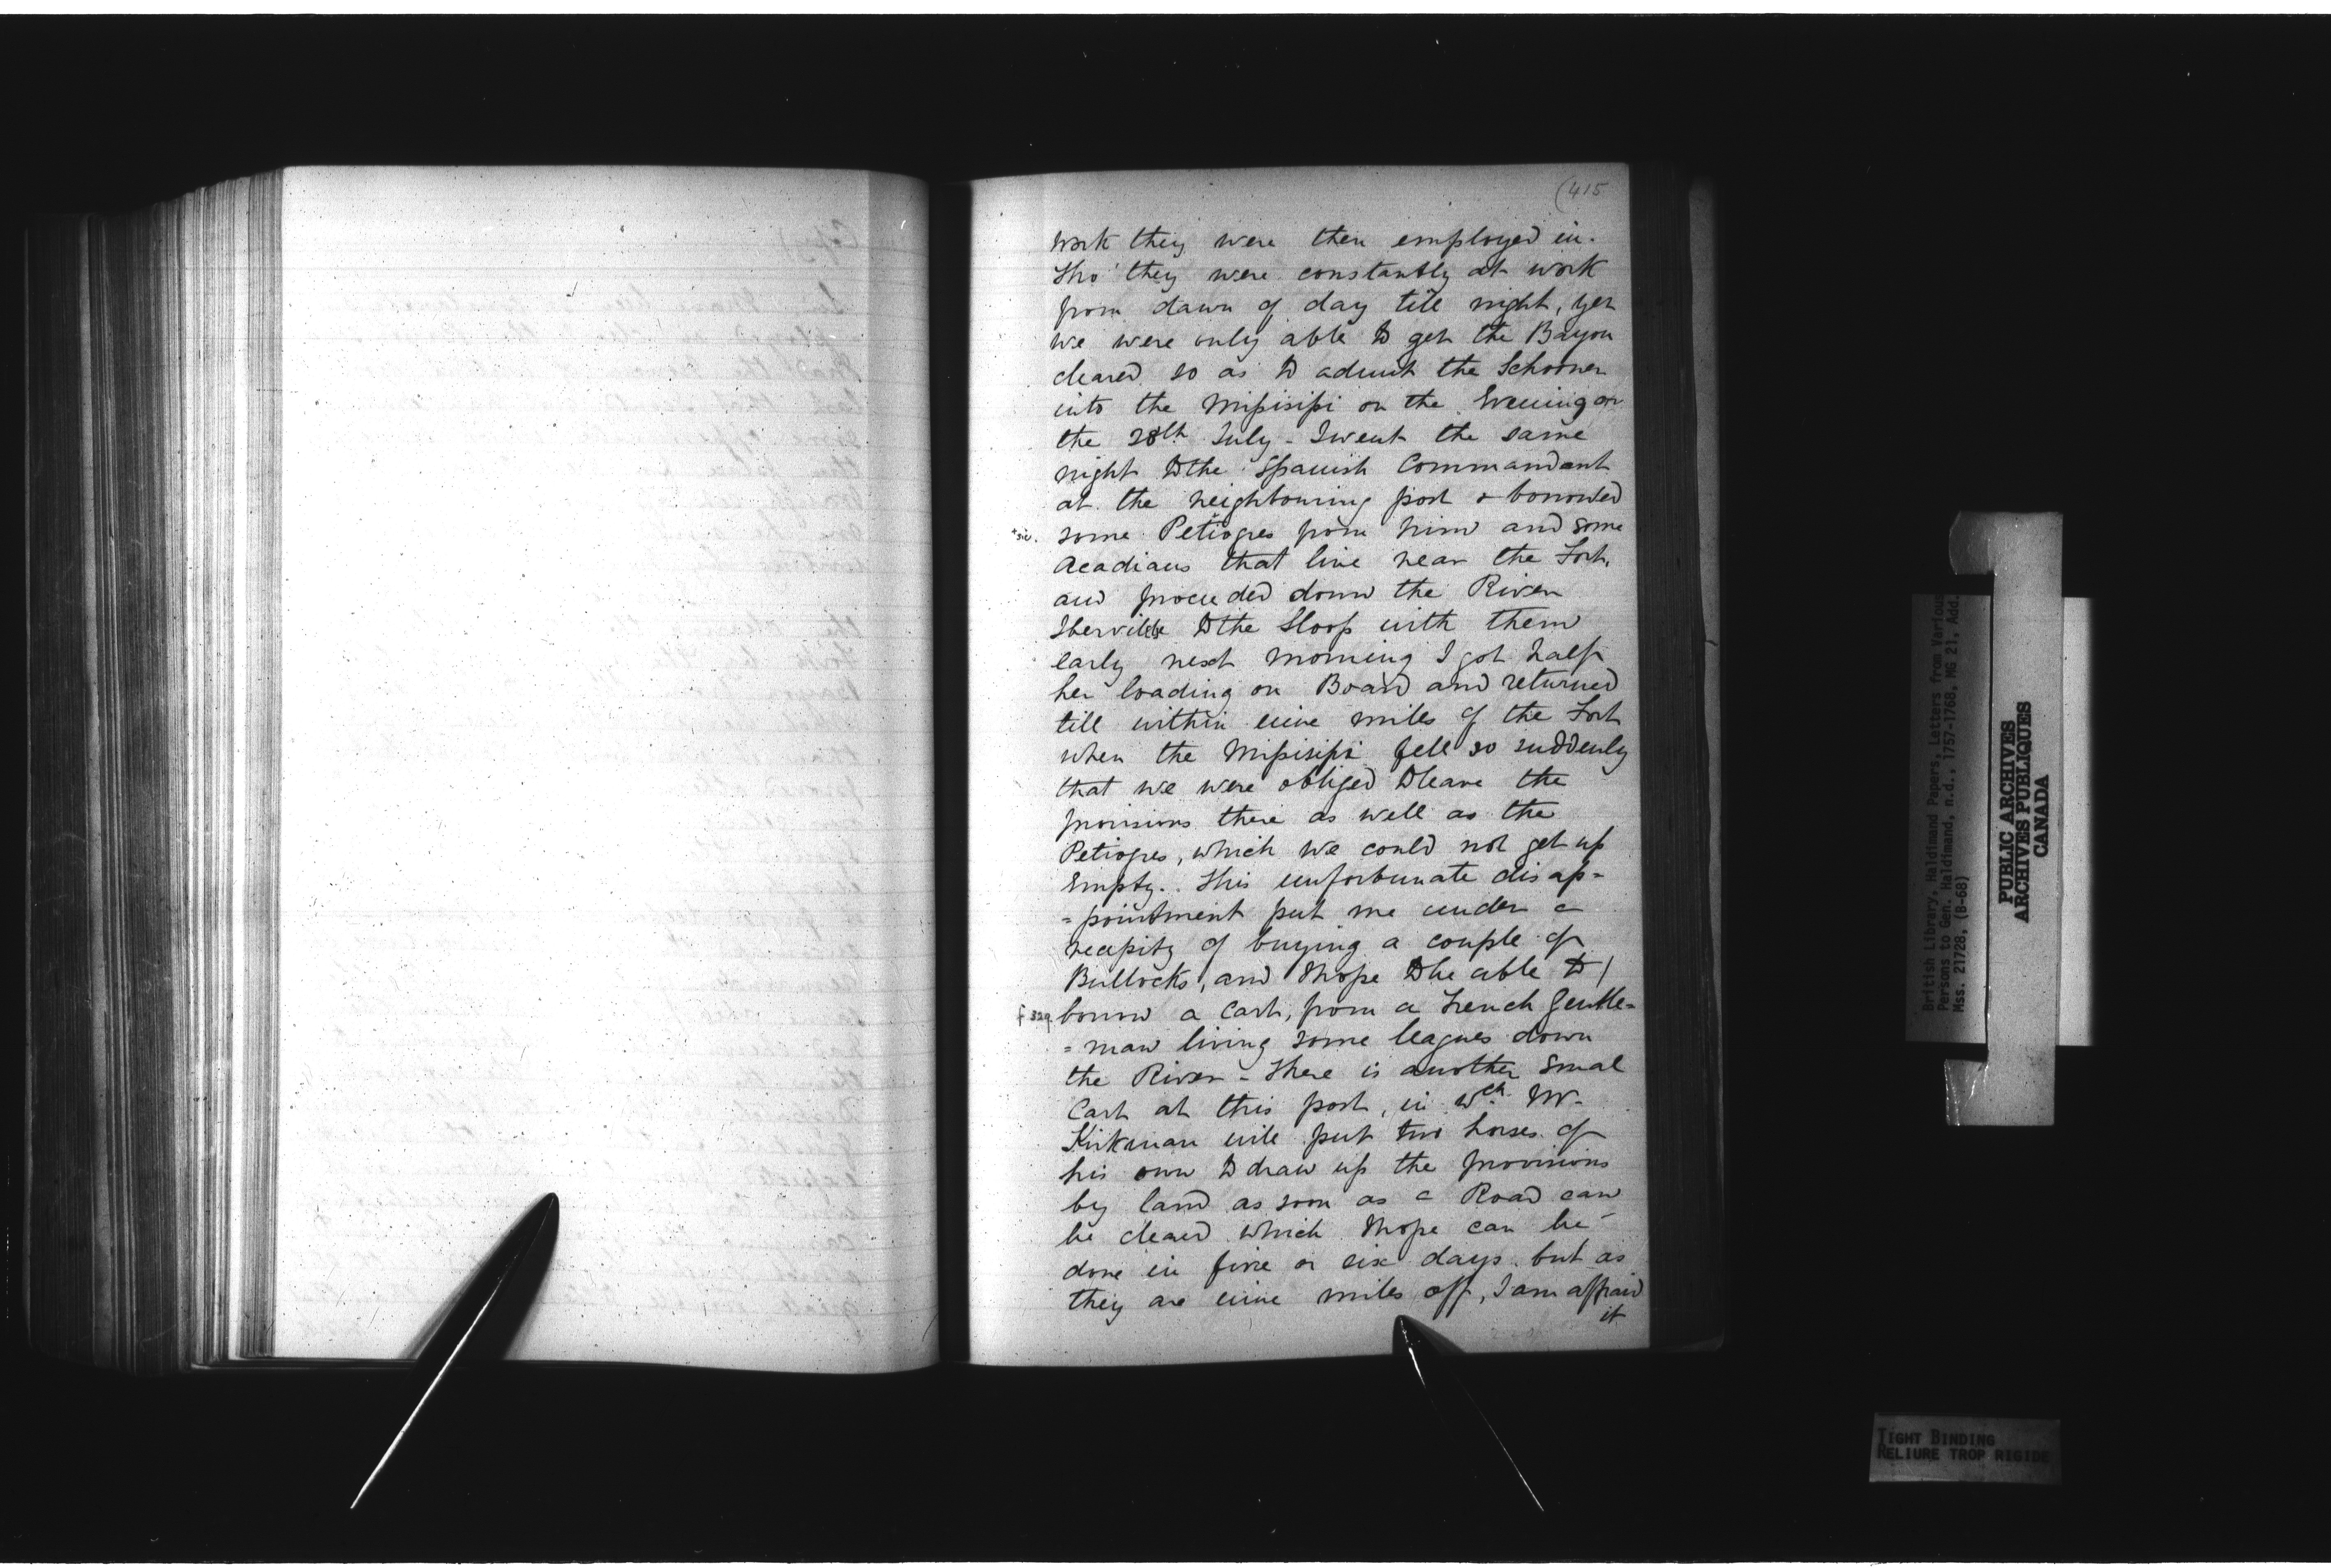 (415
work they were then employed in.
Tho' they were constantly at work
from dawn of day till night, yet
we were only able to get the Bayou
cleared so as to admit the Schooner
into the Mississipi on the Evening of
the 28th July - I went the same
night to the Spanish Commandant
at the neighbouring post & borrowed
*sic. some Petiogres from him and some
Acadians that live near the Fort,
and proceeded down the River
Iberville to the Sloop with them
early next morning I got half
her loading on Board and returned
till within nine miles of the Fort
when the Mississipi fell so suddenly
that we were obliged to leave the
provisions there as well as the
Petiogres, which we could not get up
Empty.. This unfortunate disap=
=pointment put me under a
necessity of buying a couple of
Bullocks, and I hope to be able to /
f 329. borrow a Cart, from a French Gentle=
=man living some leagues down
the River - There is another small
Cart at this post, in wch. Mr
Kirkman will put two horses of
his own to draw up the provisions
by land as soon as a Road can
be cleared which I hope can be
done in five or six days. but as
they are nine miles off, I am affraid
it
British Library, Haldimand Papers, Letters from Various
Persons to Gen. Haldimand, n.d., 1757-1768, MG 21, Add.
Mss. 21728, (B-68)
PUBLIC ARCHIVES
ARCHIVES PUBLIQUES
CANADA
TIGHT BINDING
RELIURE TROP RIGIDE